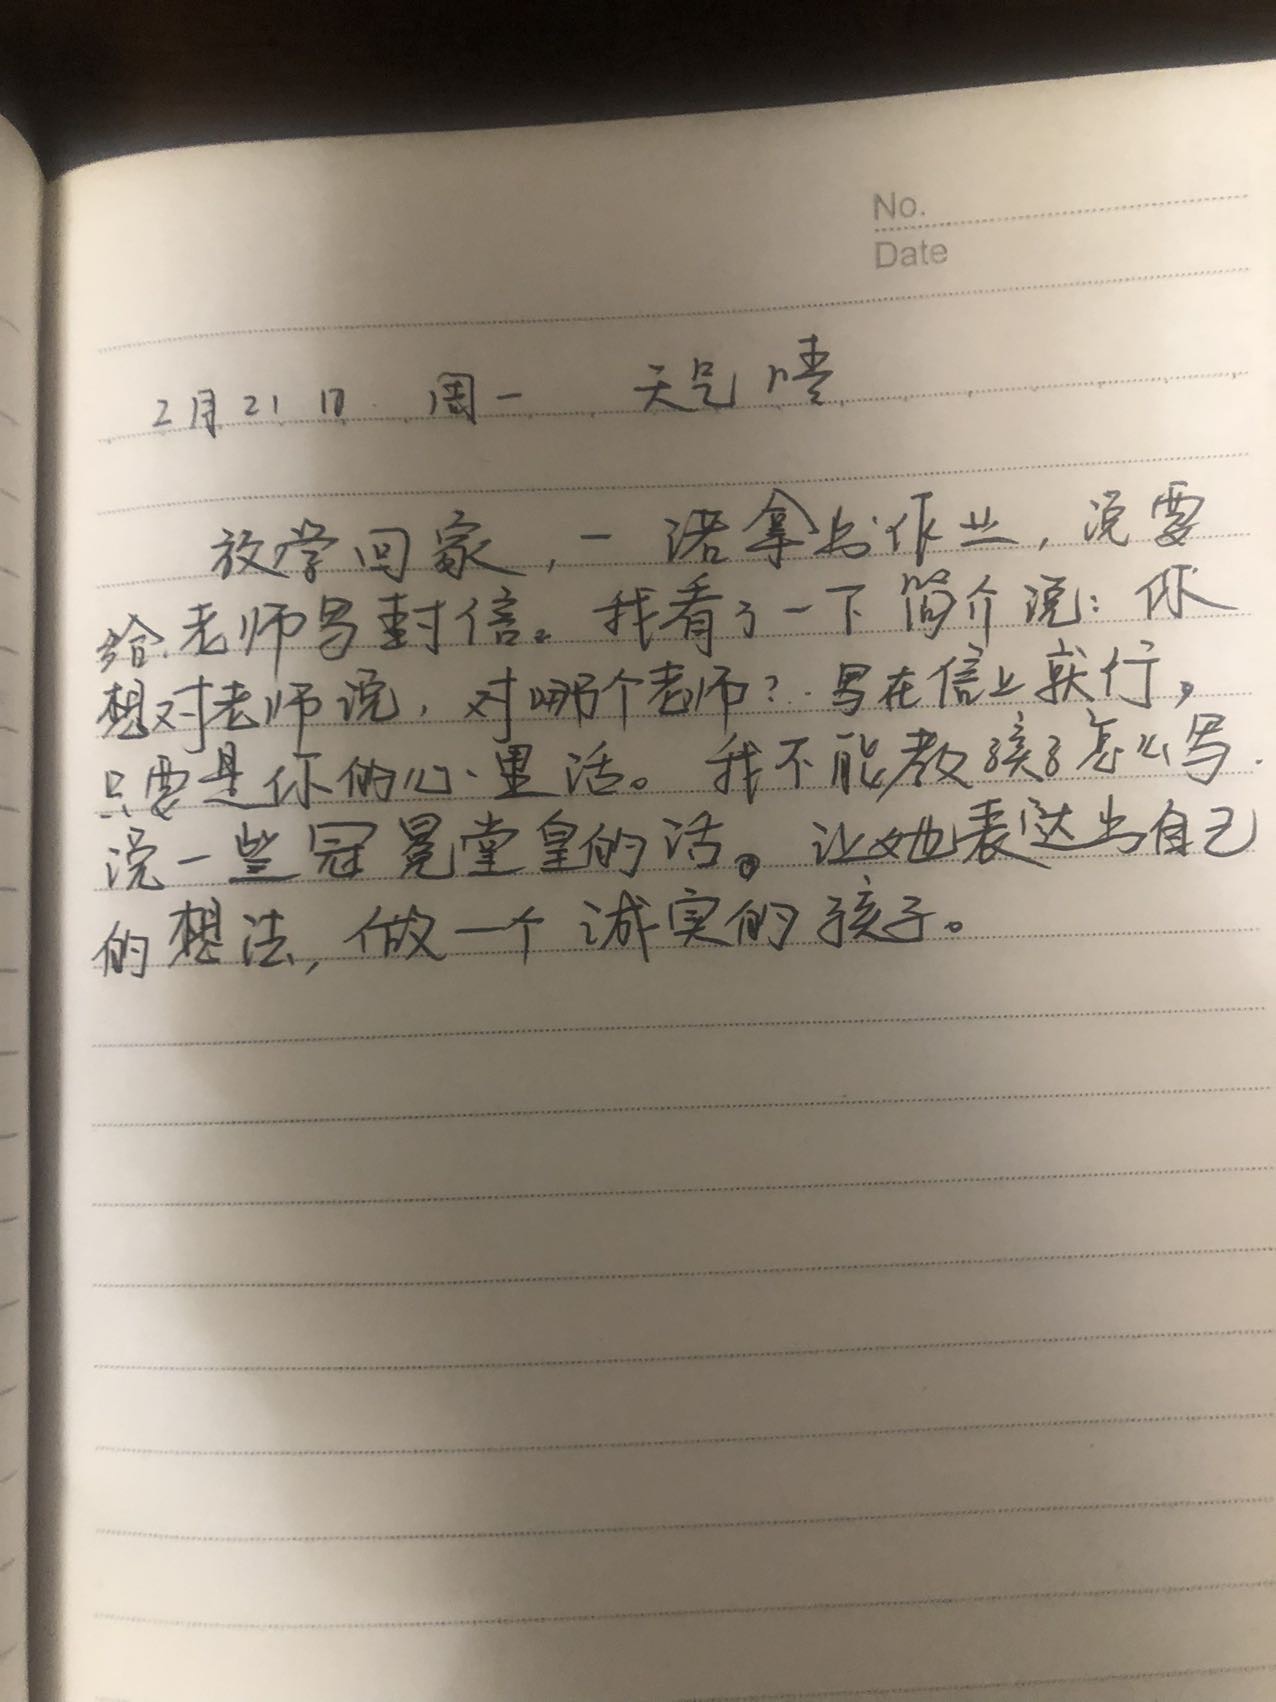 No.
Date
2月21日 周一 天气晴
放学回家，一诺拿出作业，说要
给老师写封信。我看了一下简介说：你
想对老师说，对哪个老师？写在信上就行，
只要是你的心里话。我不能教孩子怎么写.
说一些冠冕堂皇的话。让她表达出自己
的想法，做一个诚实的孩子。